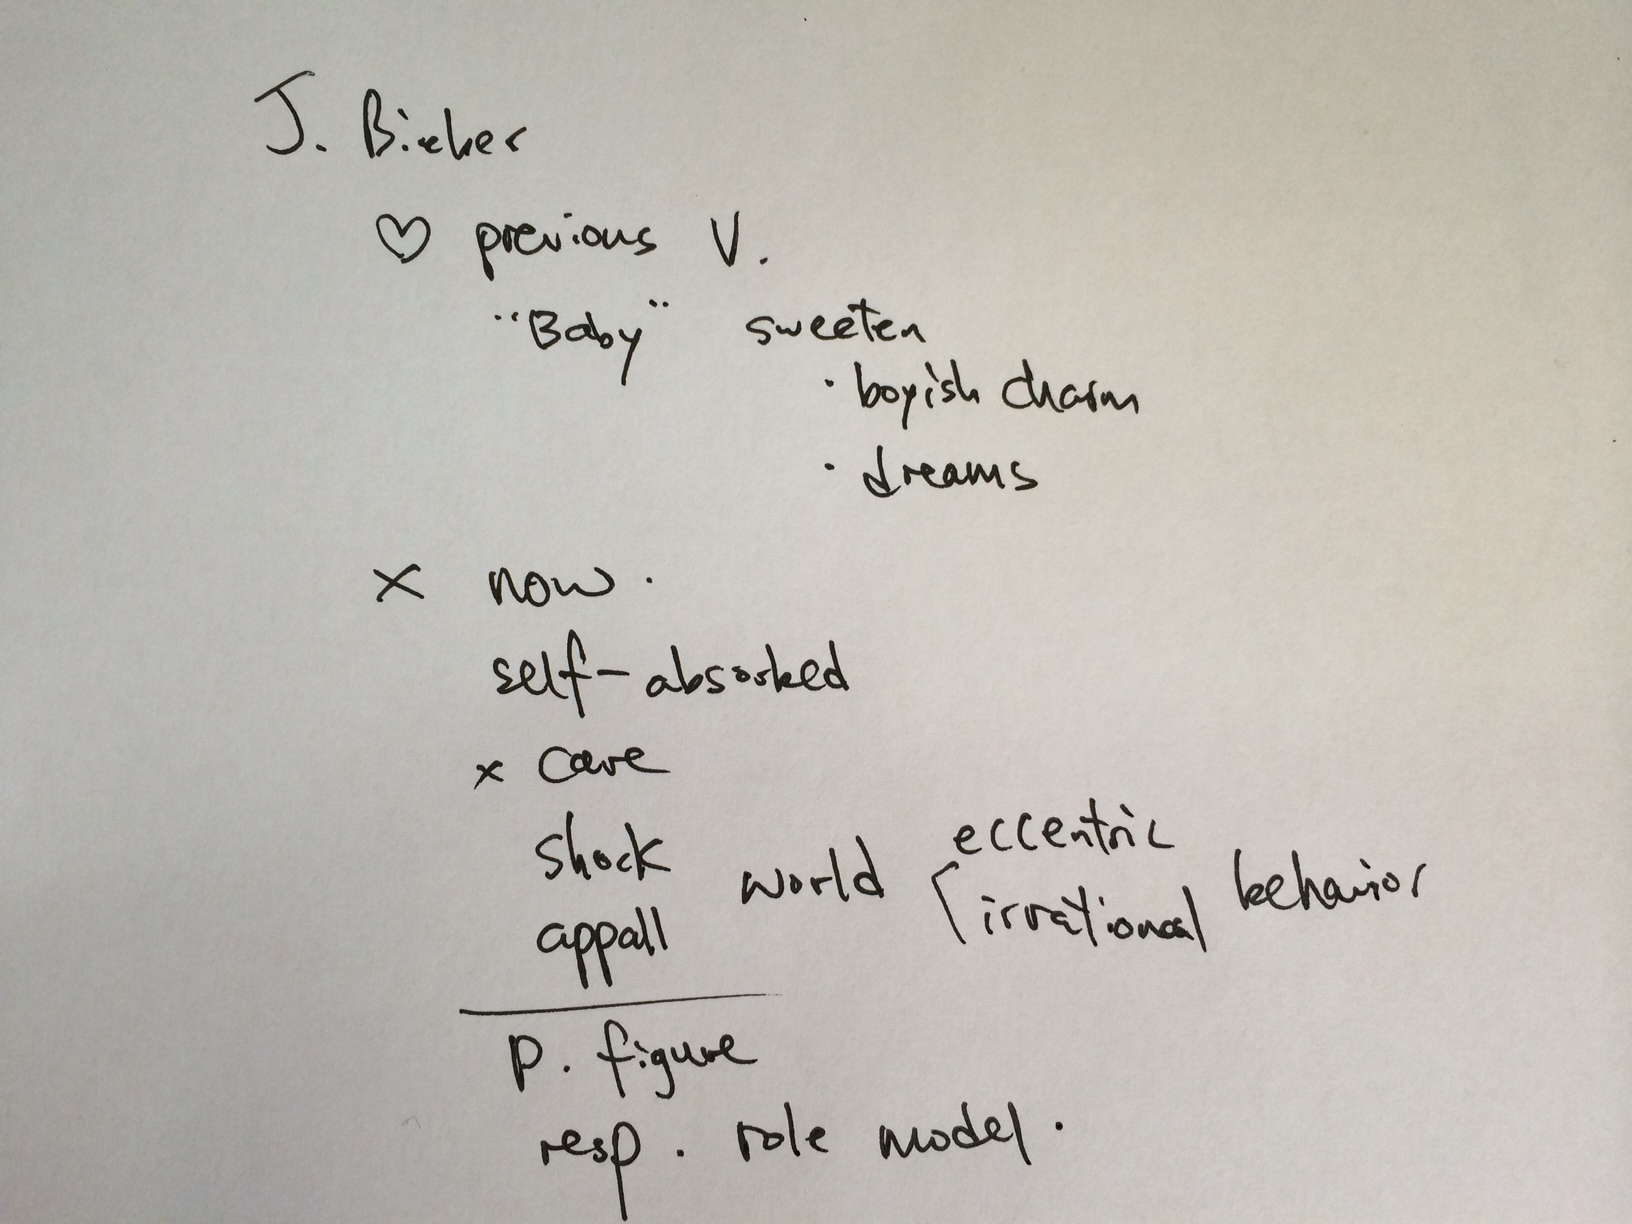 J. Bieber
♡ previous V.
"Baby" sweeten
· boyish charm
· dreams
× now.
self-absorbed
× care
shock
appall
world
eccentric
irrational
behavior
P. figure
resp. role model.